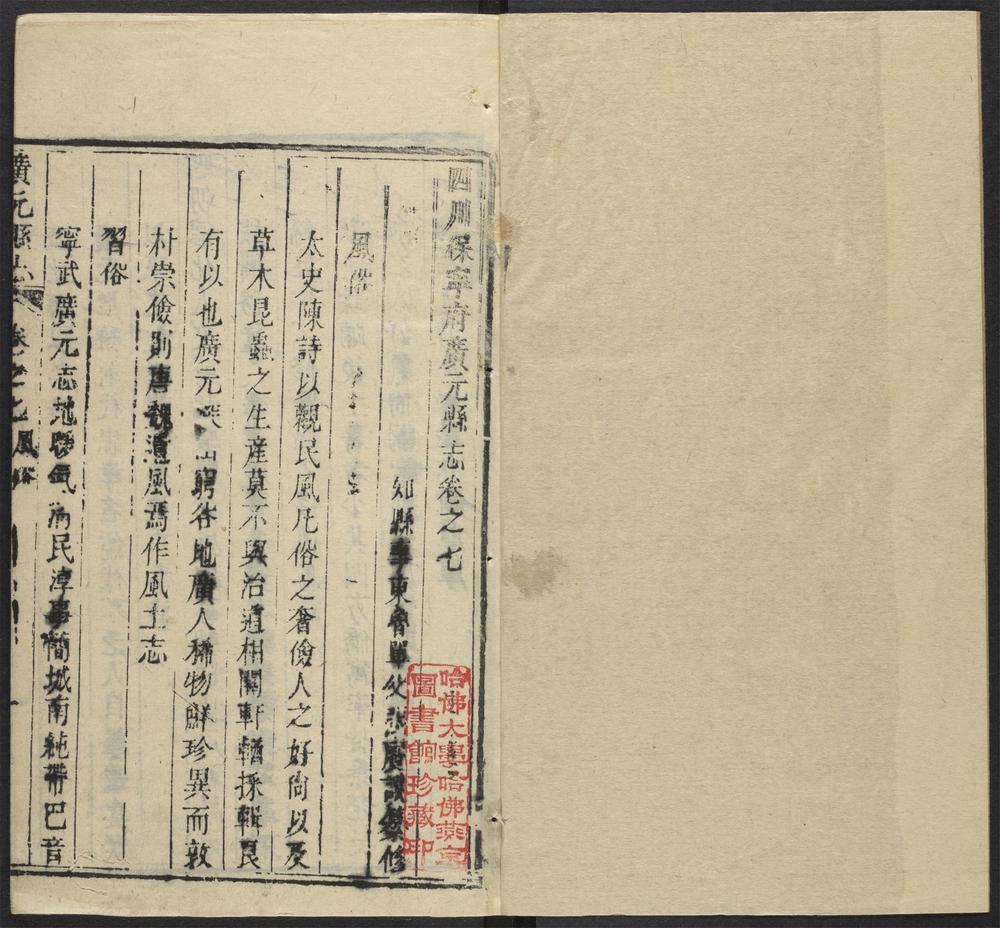 四川保寧府廣元縣志卷之七
知縣事東魯單父張廣謨纂修
風俗
太史陳詩以觀民風凡俗之奢儉人之好尚以及
草木昆蟲之生產莫不與治道相關軒輶採輯良
有以也廣元 山窮谷地廣人稀物鮮珍異而敦
朴崇儉則唐魏遺風焉作風土志
習俗
寧武廣元志地 氣 民淳事簡城南純帶巴音
廣元縣志 卷之七 風俗 一
哈佛大學哈佛燕京
圖書館珍藏印